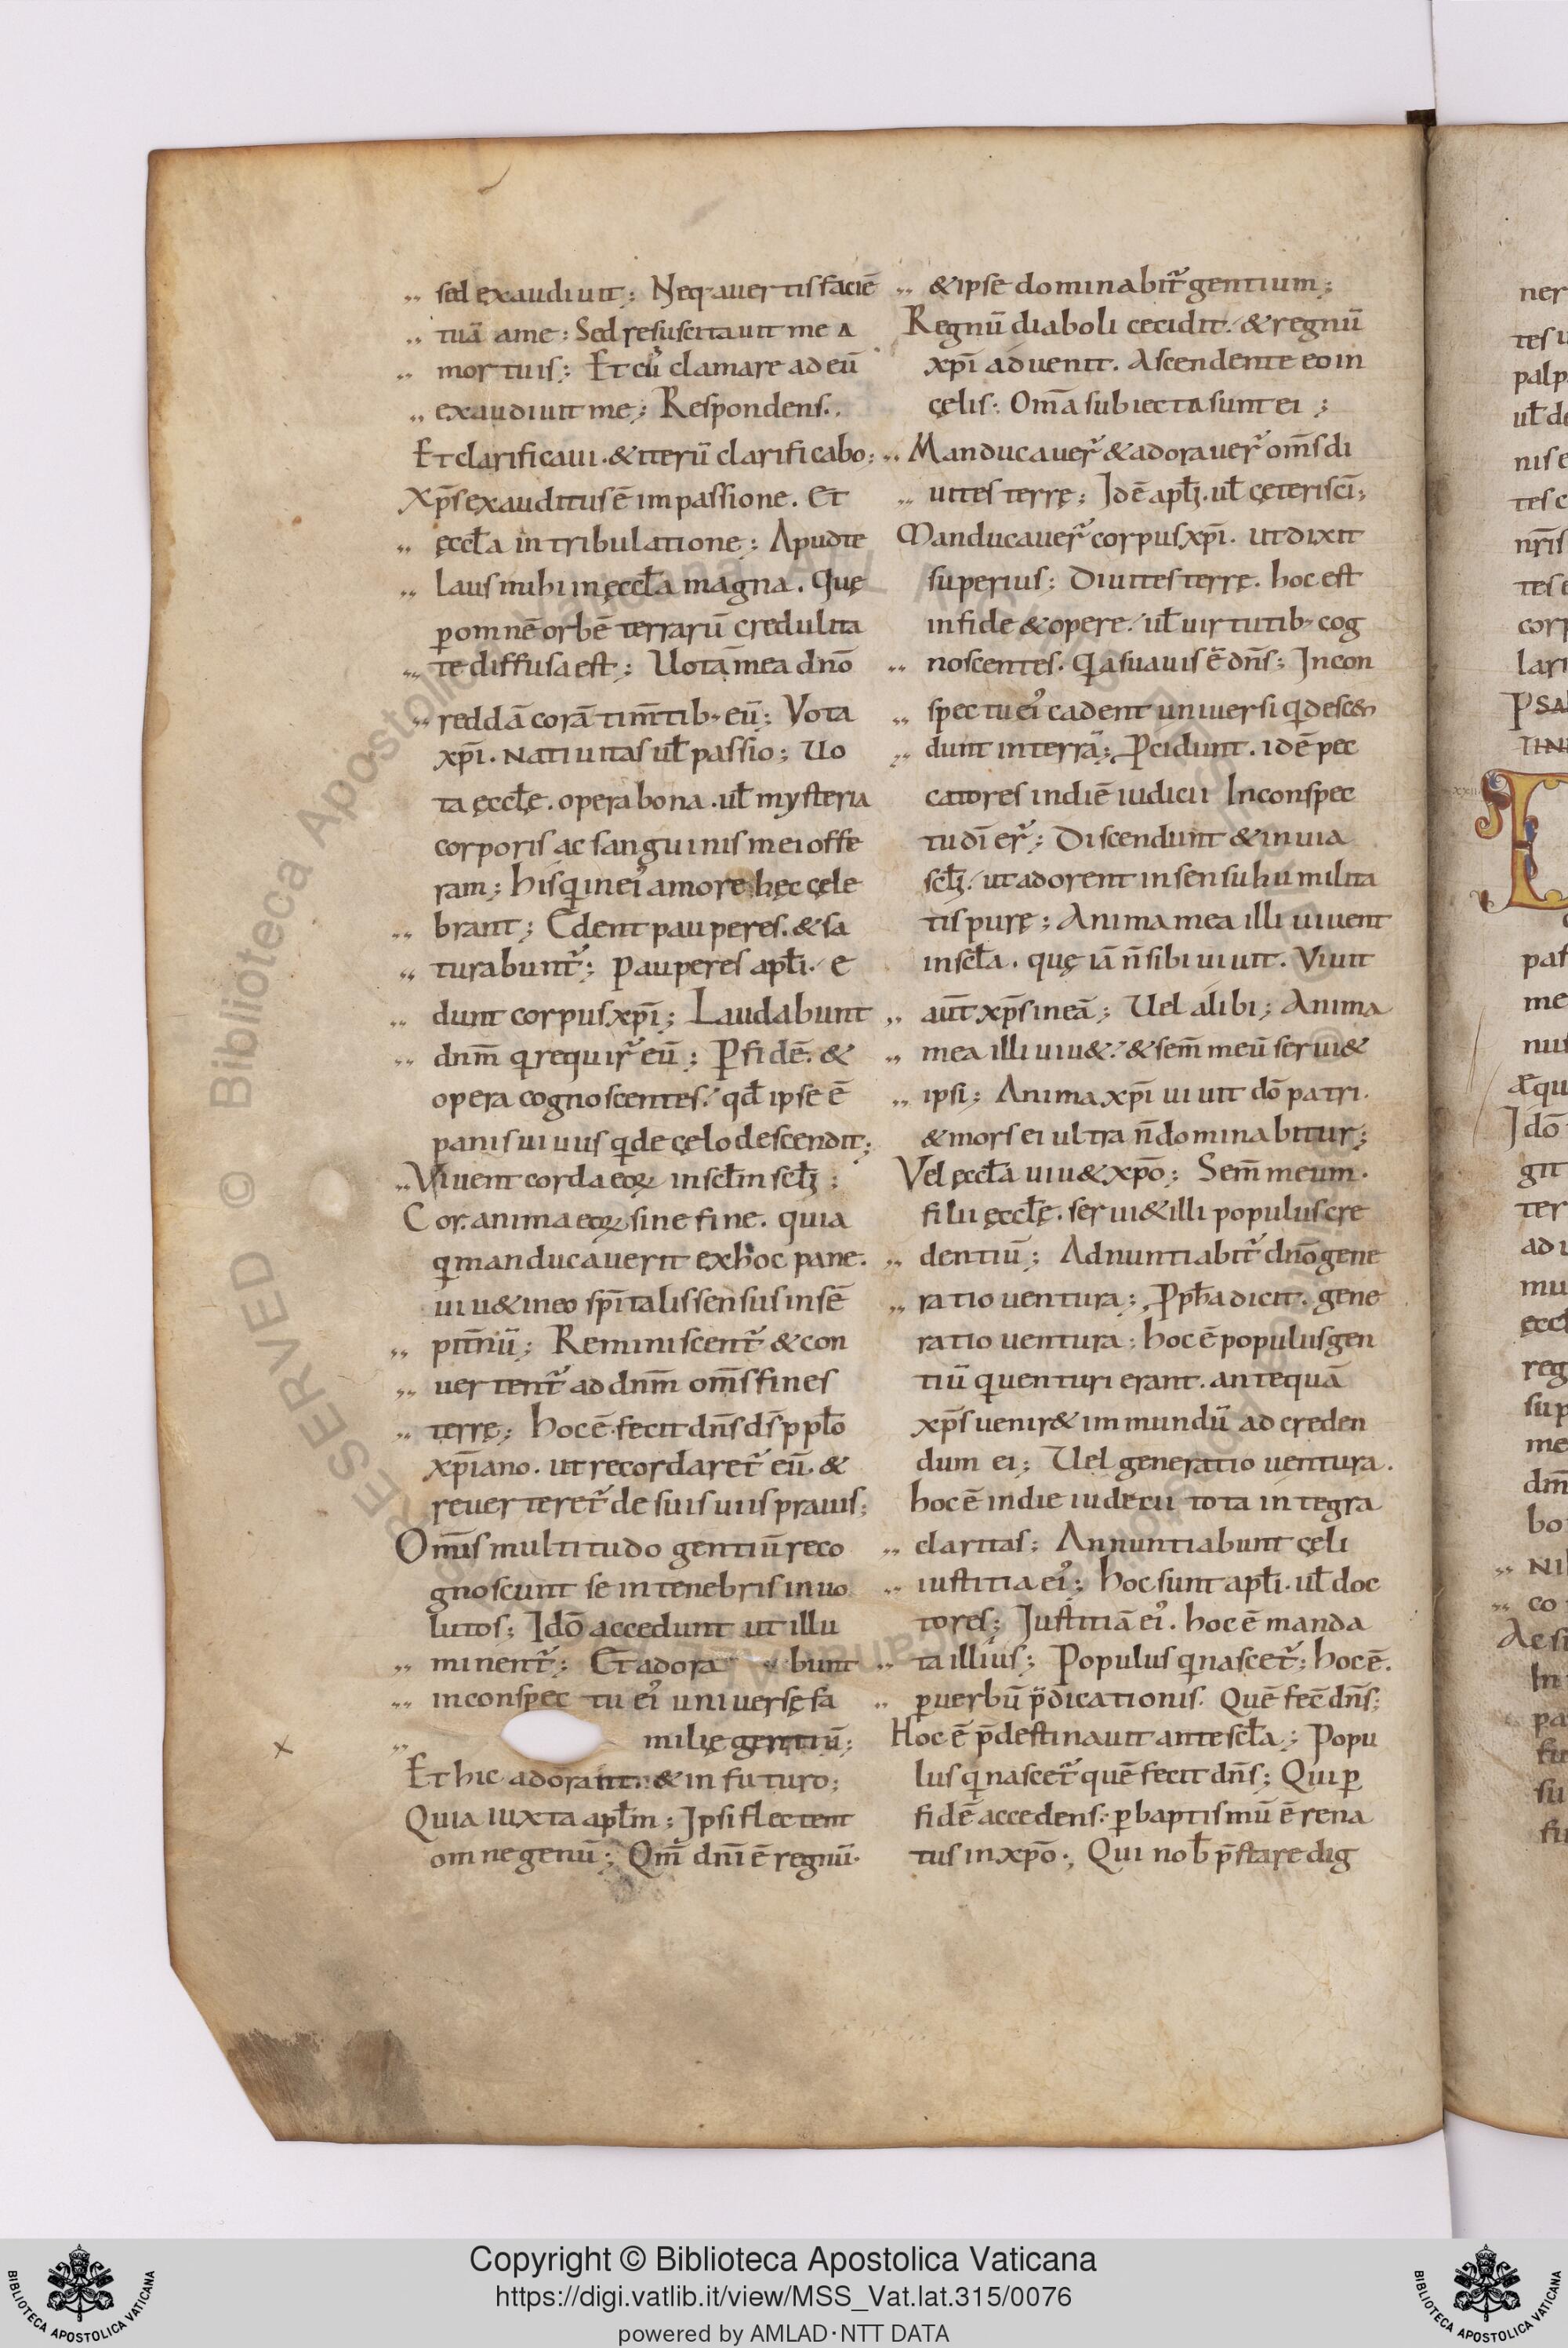 sed exaudiuit; Neq; auertis faciē
tuā a me; Sed resuscitauit me a
mortuis; Et cū clamare ad eū
exaudiuit me; Respondens.
Et clarificaui. & iterū clarificabo;
Xp̄s exauditus ē in passione. Et
ęccƚa in tribulatione; Apud te
laus mihi in ęccƚa magna. Quę
ꝑ omnē orbē terrarū credulita
te diffusa est; Uota mea dn̄o
reddā corā tim̄tib; eū; Vota
xp̄i. natiuitas uƚ passio; Uo
ta ęccƚę. opera bona. uƚ mysteria
corporis ac sanguinis mei offe
ram; his qͥ in eiꝰ amore hęc cęle
brant; Edent pauperes. & sa
turabunt̄; Pauperes apƚi. e
dunt corpus xp̄i; Laudabunt
dnm̄ qͥ requir̄ eū; P fidē. &
opera cognoscentes. qđ ipse ē
panis uiuus qͥ de cęlo descendit;
Viuent corda eoꝝ in scƚm scƚi;
Cor. anima eoꝝ sine fine. quia
qͥ manducauerit ex hoc pane.
uiu& in eo sp̄italis sensus in sē
pit̄nū; Reminiscent̄ & con
uertent̄ ad dnm̄ om̄s fines
terrę; Hoc ē. fecit dn̄s d̄s ppƚo
xp̄iano. ut recordaret̄ eū. &
reuerteret̄ de suis uiis prauis;
Om̄is multitudo gentiū reco
gnoscunt se in tenebris inuo
lutos; Idō accedunt ut illu
minent̄; Et adora bunt
in conspec tu eiꝰ uniuersę fa
milię gentiū;
Et hic adorant. & in futuro;
Quia iuxta apƚm; Ipsi flectent
omne genū; Qm̄ dn̄i ē regnū.
& ipse dominabit̄ gentium;
Regnū diaboli cecidit. & regnū
xp̄i aduenit. Ascendente eo in
cęlis. Om̄a subiecta sunt ei;
Manducauer̄ & adorauer̄ om̄s di
uites terrę; Id ē apƚi. uƚ cęteri sc̄i;
Manducauer̄ corpus xp̄i. ut dixit
superius; Diuites terrę. hoc est
in fide & opere. uƚ uirtutib; cog
noscentes. qͥa suauis ē dn̄s; In con
spectu eiꝰ cadent uniuersi qͥ descen
dunt in terrā; Pcidunt. id ē pec
catores in diē iudicii In conspec
tu dī er̄; Discendunt & in uia
scƚi. ut adorent in sensu humilita
tis purę; Anima mea illi uiuent
in scƚa. quę iā n̄ sibi uiuit. Viuit
aūt xp̄s in eā; Uel alibi; Anima
mea illi uiu&. & sem̄ meū serui&
ipsi; Anima xp̄i uiuit dō patri.
& mors ei ultra n̄ dominabitur;
Vel ęccƚa uiu& xp̄o; Sem̄ meum.
filii ęccƚę. serui& illi populus cre
dentiū; Adnuntiabit̄ dn̄o gene
ratio uentura; Ppħa dicit. gene
ratio uentura; hoc ē populus gen
tiū qͥ uenturi erant. antequā
xp̄s uenir& in mundū ad creden
dum ei; Uel generatio uentura.
hoc ē in die iudecii tota integra
claritas; Annuntiabunt cęli
iustitia eiꝰ; hoc sunt apƚi. uƚ doc
tores; Iustitiā eiꝰ. hoc ē manda
ta illius; Populus qͥ nascet̄; hoc ē.
ꝑ uerbū p̄dicationis. Quē fec̄ dn̄s;
Hoc ē p̄destinauit ante scƚa; Popu
lus qͥ nascet̄ quē fecit dn̄s; Qui ꝑ
fidē accedens. ꝑ baptismū ē rena
tus in xp̄o; Qui noƀ p̄stare dig
Copyright © Biblioteca Apostolica Vaticana
https://digi.vatlib.it/view/MSS_Vat.lat.315/0076
powered by AMLAD·NTT DATA